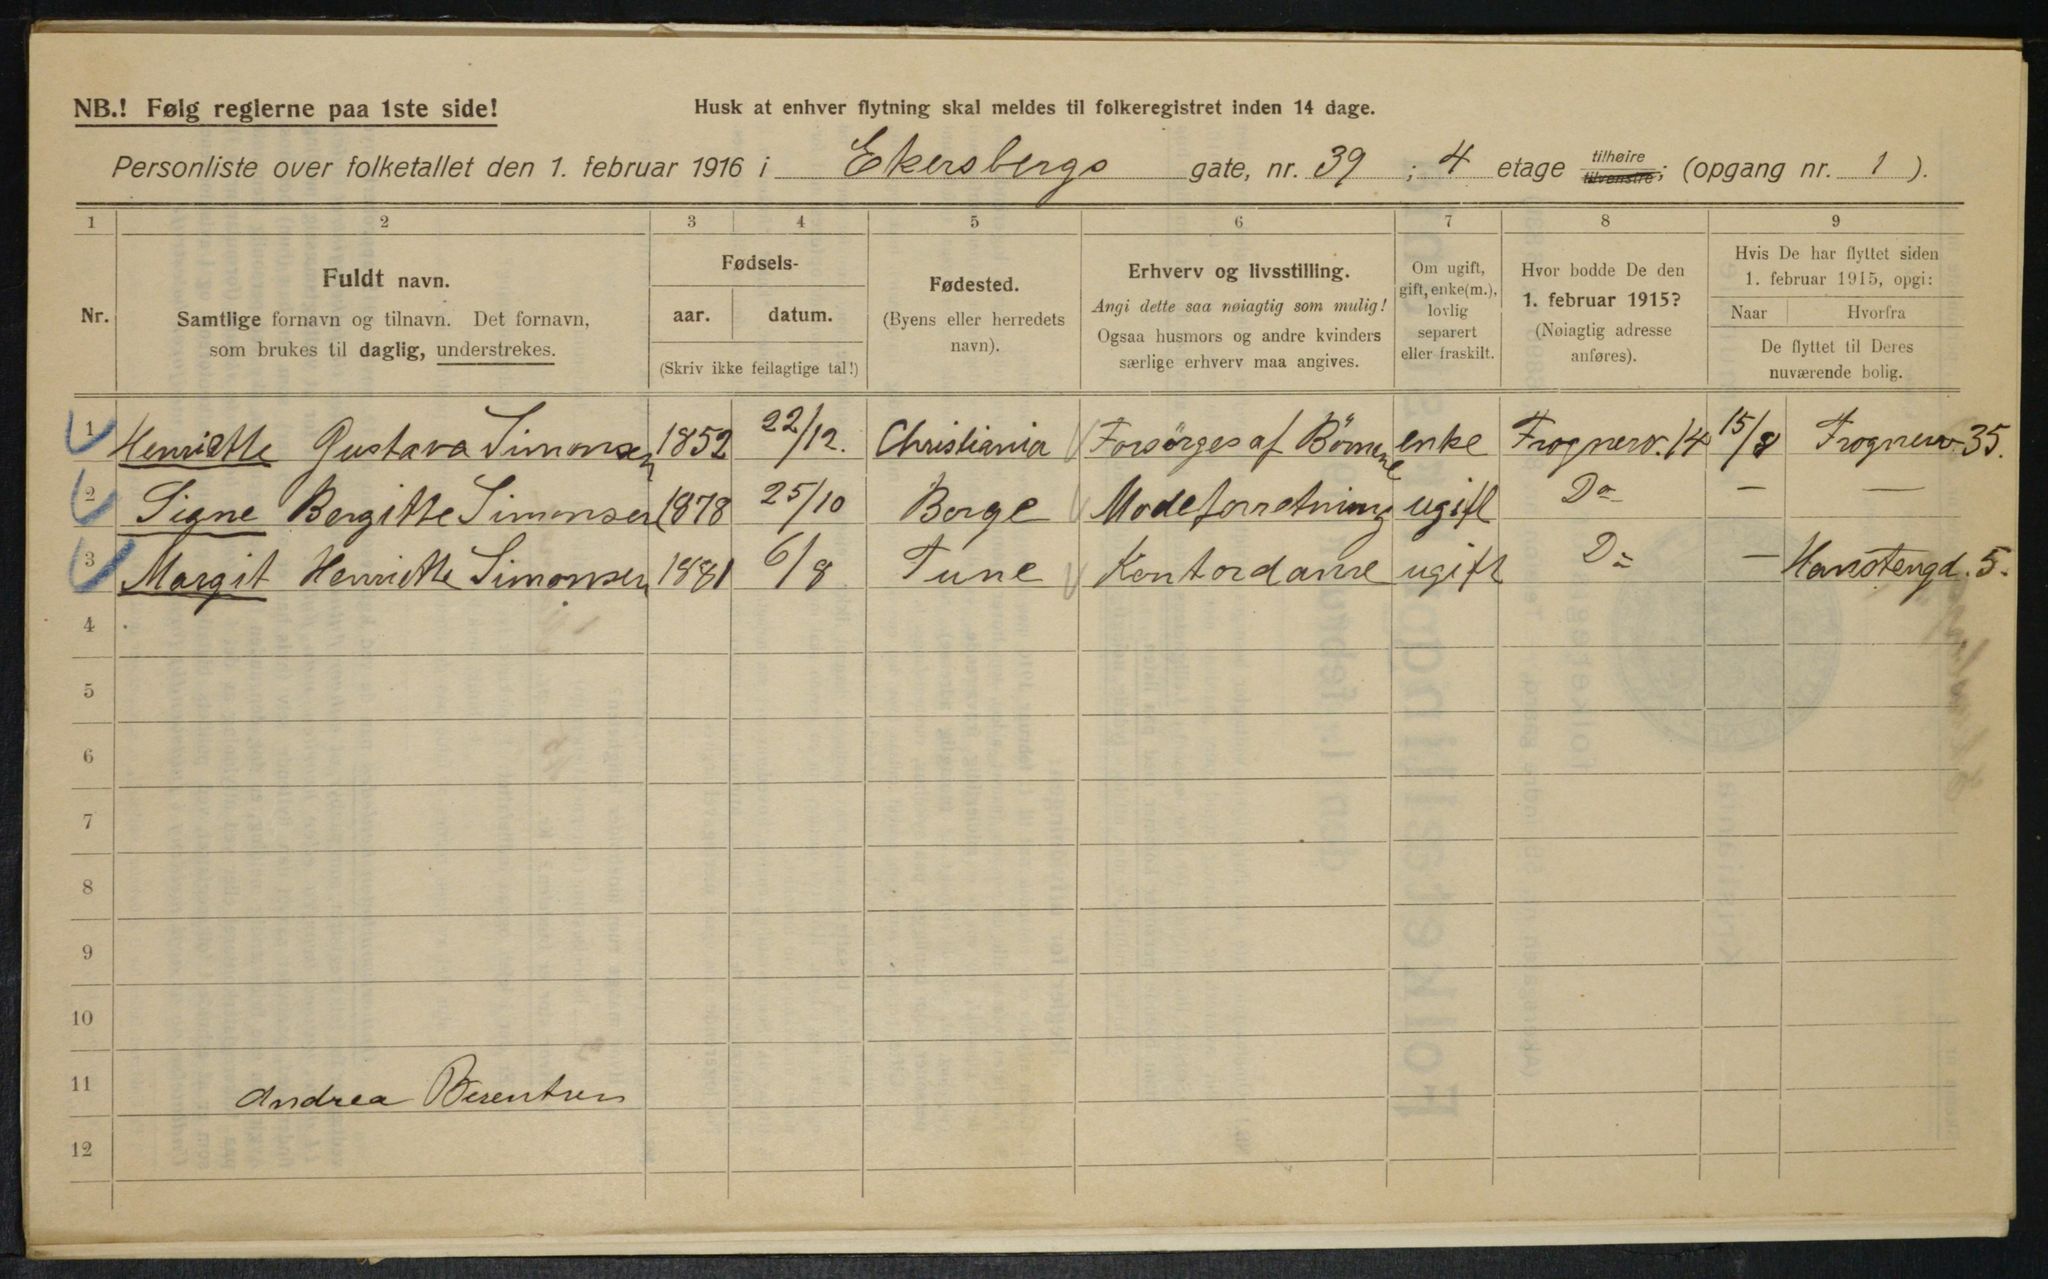 NB.! Følg reglerne paa 1ste side!
Husk at enhver flytning skal meldes til folkeregistret inden 14 dage.
Personliste over folketallet den 1. februar 1916 i Ekersbergs gate, nr. 39 ; 4 etage tilhøire tilvenstre; (opgang nr. 1 ).
1 2 3 4 5 6 7 8 9
Nr.
Fuldt navn.
Samtlige fornavn og tilnavn. Det fornavn,
som brukes til daglig, understrekes.
Fødsels-
aar. datum.
(Skriv ikke feilagtige tal!)
Fødested.
(Byens eller herredets
navn).
Erhverv og livsstilling.
Angi dette saa nøiagtig som mulig!
Ogsaa husmors og andre kvinders
særlige erhverv maa angives.
Om ugift,
gift, enke(m.),
lovlig
separert
eller fraskilt.
Hvor bodde De den
1. februar 1915?
(Nøiagtig adresse
anføres).
Hvis De har flyttet siden
1. februar 1915, opgi:
Naar Hvorfra
De flyttet til Deres
nuværende bolig.
1 Henriette Gustava Simonsen 1852 22/12. Christiania Forsörges af Börnene enke Frognerv. 14 15/8 Frognerv. 35.
2 Signe Bergitte Simonsen 1878 25/10 Borge Modeforretning ugift Do — —
3 Margit Henriette Simonsen 1881 6/8 Tune Kontordame ugift Do — 5.
4
5
6
7
8
9
10
11 Andrea Berentsen
12